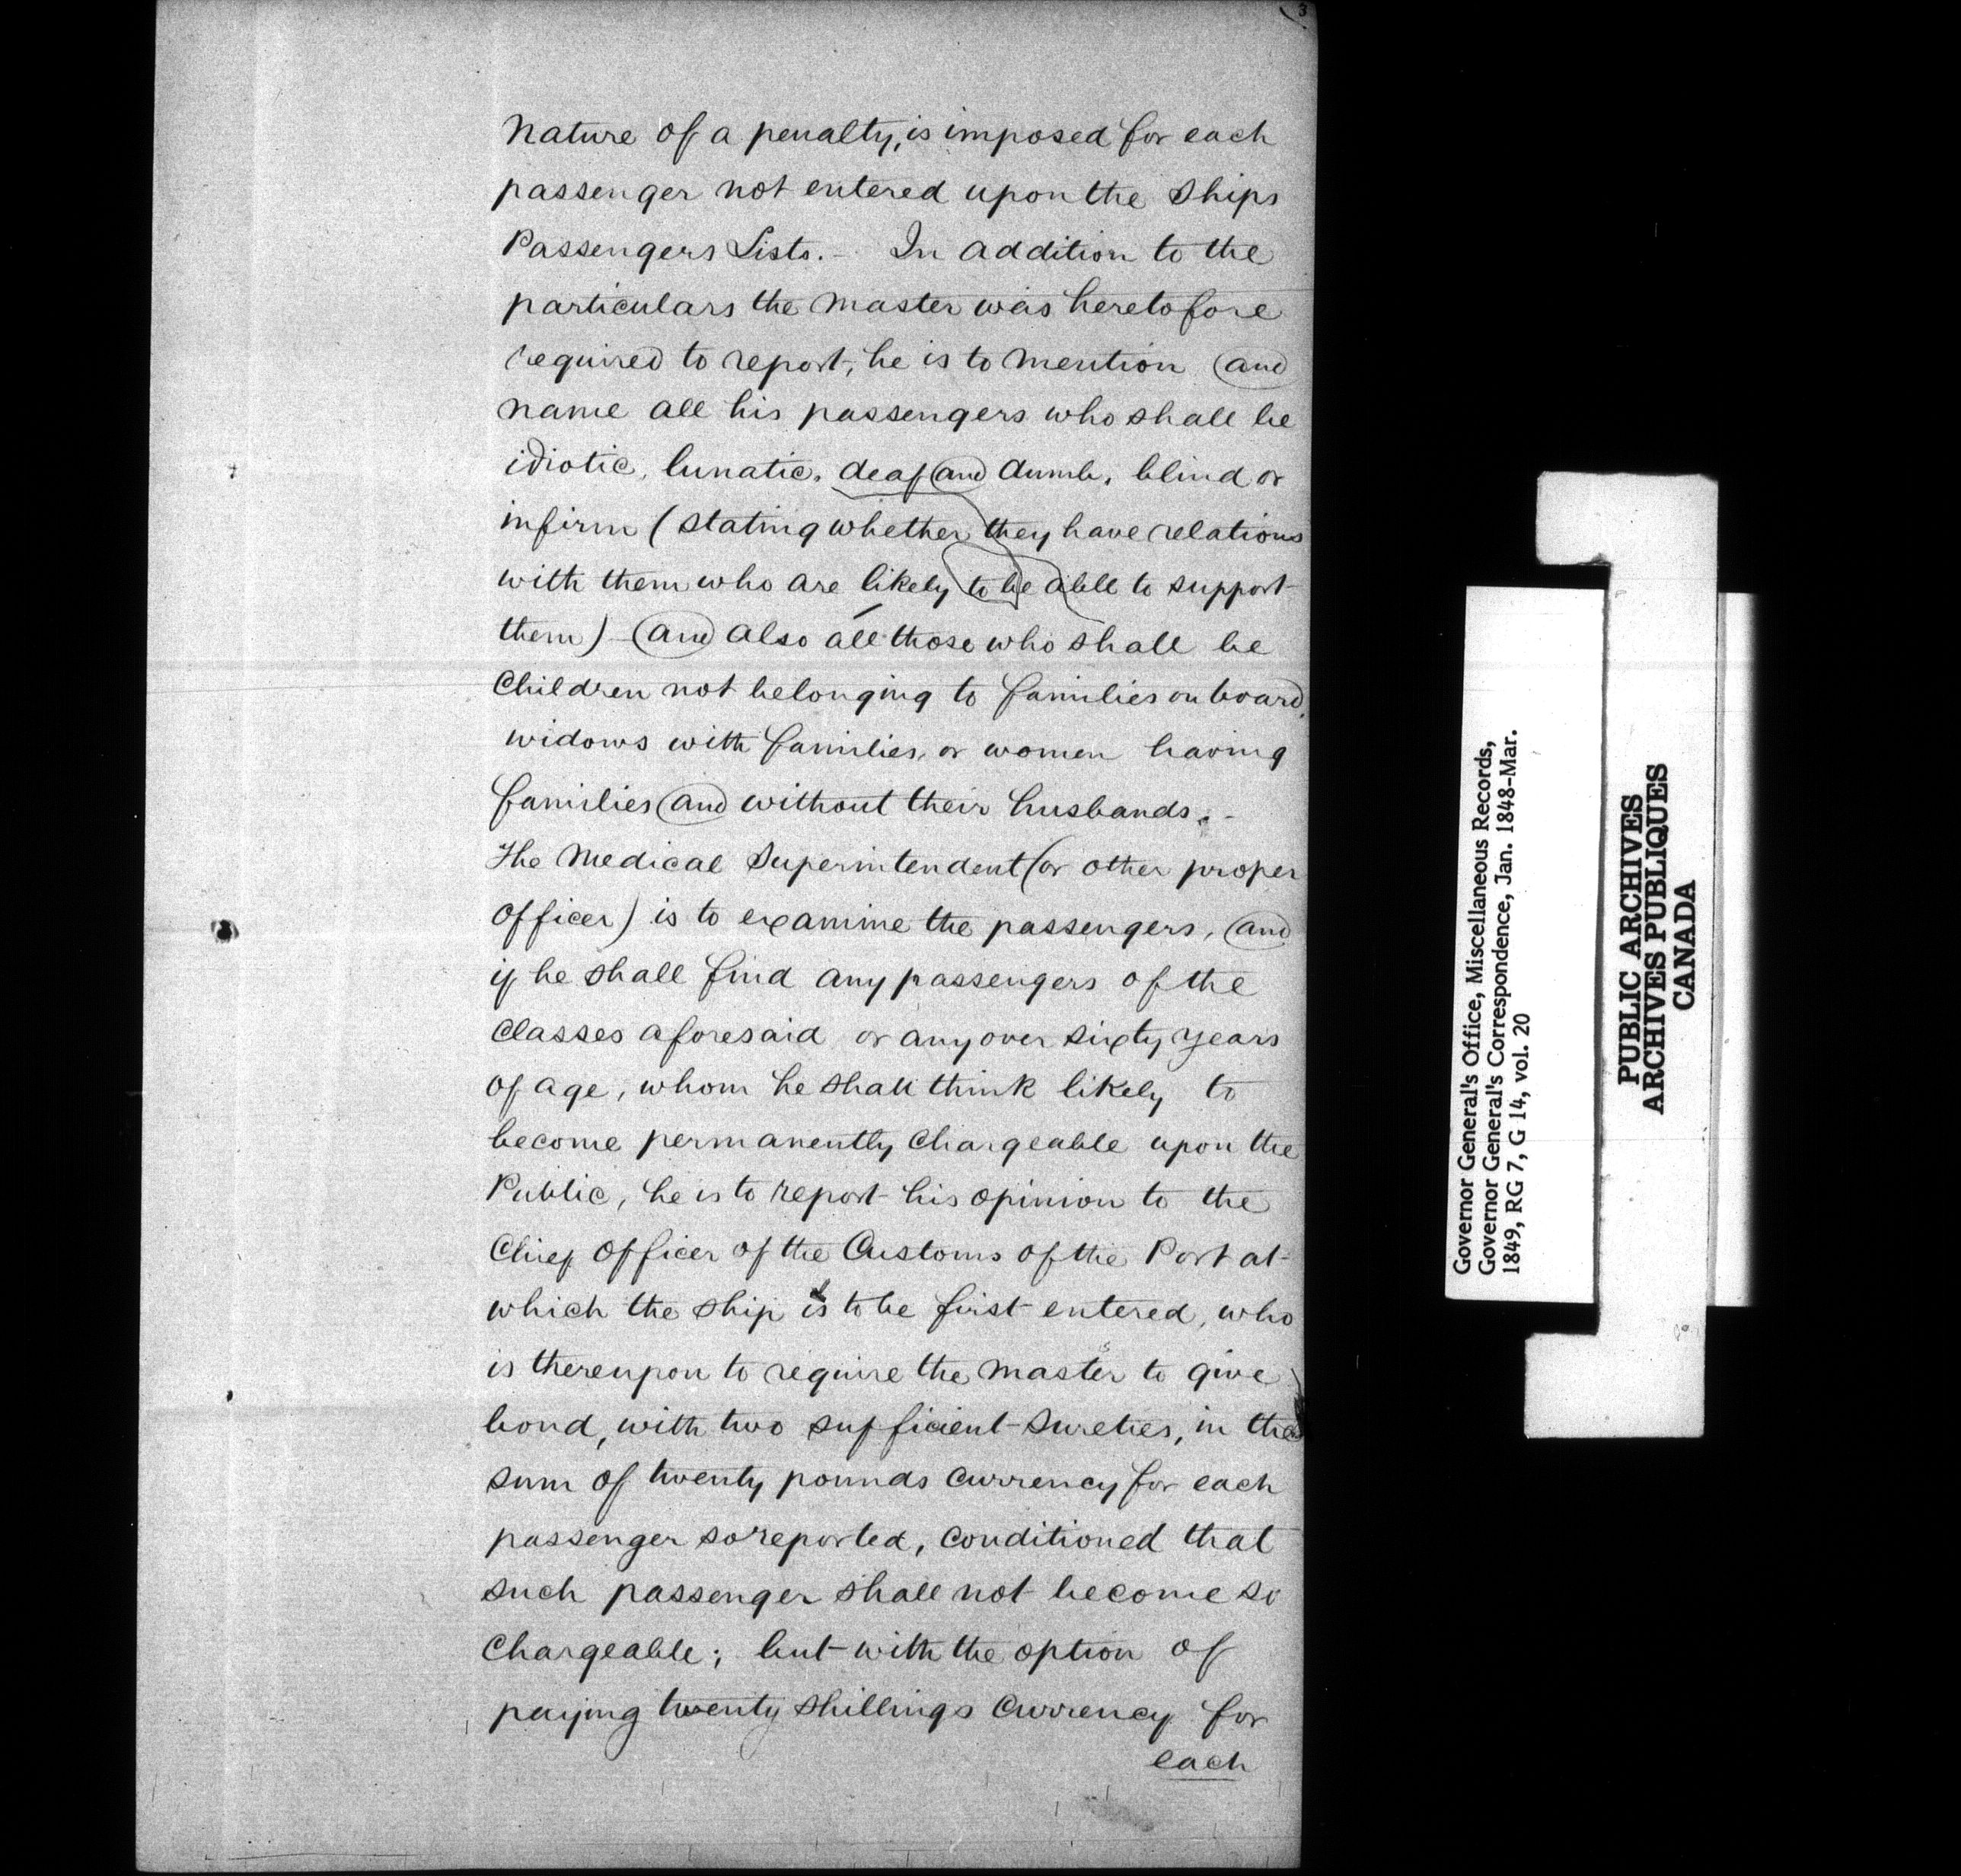 3
nature of a penalty, is imposed for each
passenger not entered upon the Ships
Passengers Lists. - In addition to the
particulars the Master was heretofore
required to report, he is to mention and
name all his passengers who shall be
idiotic, lunatic, deaf and dumb, blind or
infirm (stating whether they have relations
with them who are likely to be able to support
them) and also all those who shall be
Children not belonging to families on board,
widows with families, or women having
families and without their husbands. -
The Medical Superintendent (or other proper
Officer) is to examine the passengers, and
if he shall find any passengers of the
Classes aforesaid or any over sixty years
of age, whom he shall think likely to
become permanently Chargeable upon the
Public, he is to report his opinion to the
Chief Officer of the Customs of the Port at
which the ship is to be first entered, who
is thereupon to require the Master to give
bond, with two sufficient Sureties, in the
sum of twenty pounds Currency for each
passenger so reported, Conditioned that
such passenger shall not become so
Chargeable; but with the option of
paying twenty Shillings Currency for
each
Governor General's Office, Miscellaneous Records,
Governor General's Correspondence, Jan. 1848-Mar.
1849, RG 7, G 14, vol. 20
PUBLIC ARCHIVES
ARCHIVES PUBLIQUES
CANADA